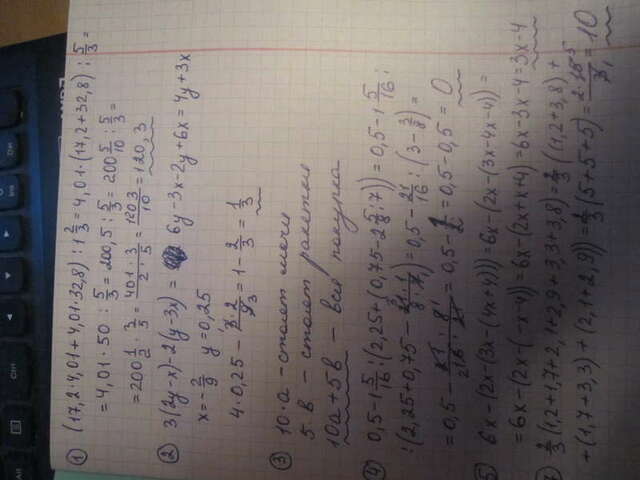 ① (17,2·4,01+4,01·32,8):1 2/3 = 4,01·(17,2+32,8) : 5/3 =
= 4,01·50 : 5/3 = 200,5 : 5/3 = 200 5/10 : 5/3 =
= 200 1/2 · 3/5 = 401·3/2·5 = 1203/10 = 120,3
② 3(2y-x)-2(y-3x) = 6y-3x-2y+6x = 4y+3x
x=-2/9 y=0,25
4·0,25 - 3·2/9 3 = 1 - 2/3 = 1/3
③ 10·a - стоят мячи
5·в - стоят ракетки
10a+5в - вся покупка
④ 0,5-1 5/16 : (2,25+(0,75-2 5/8 : 7)) = 0,5-1 5/16 :
: (2,25+0,75 - 21·1/8·7) = 0,5 - 21/16 : (3 - 3/8) =
= 0,5 - 21·8/16·21 = 0,5 - 1/2 = 0,5-0,5 = 0
⑤ 6x-(2x-(3x-(4x+4))) = 6x-(2x-(3x-4x-4)) =
= 6x-(2x-(-x-4)) = 6x-(2x+x+4) = 6x-3x-4 = 3x-4
2/3 (1,2+1,7+2,1+2,9+3,3+3,8) = 2/3 ((1,2+3,8) +
+(1,7+3,3)+(2,1+2,9)) = 2/3 (5+5+5) = 2·15 5/3 1 = 10